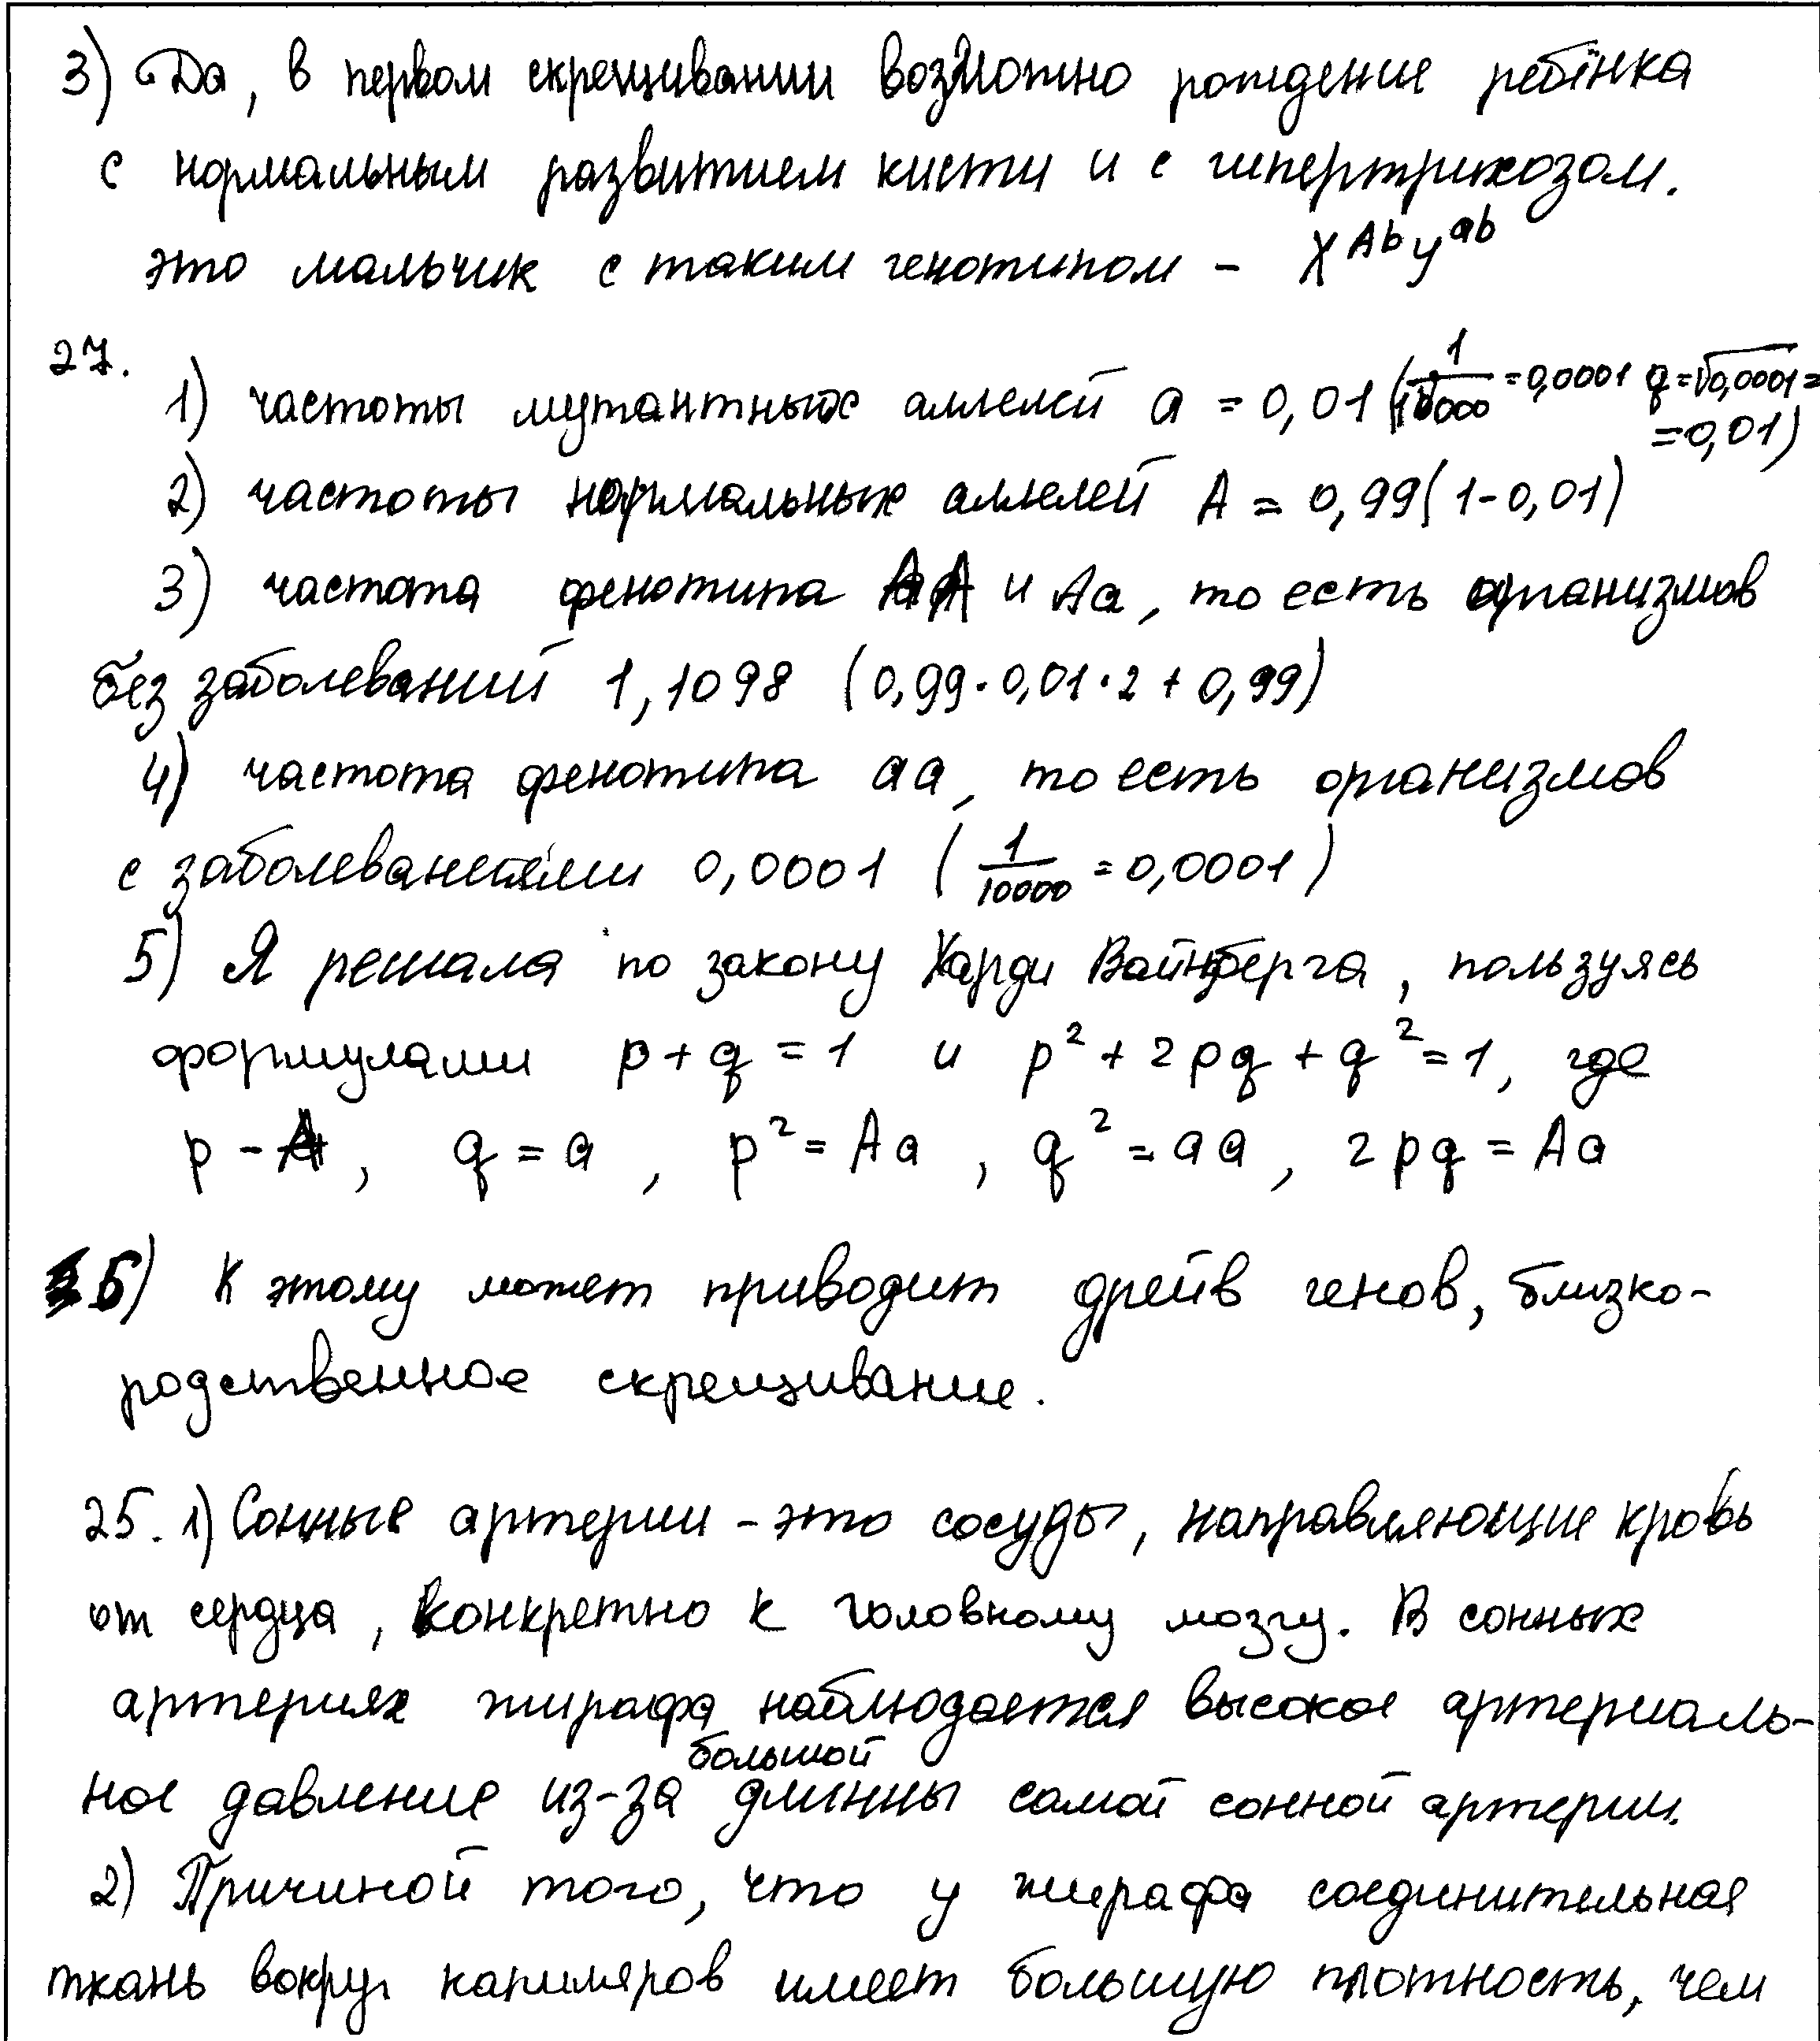 3) Да, в первом скрещивании возможно рождение ребёнка
с нормальным развитием кисти и с гипертрихозом.
это мальчик с таким генотипом - X^Ab y^ab
27.
1) частоты мутантных аллелей a = 0,01 (1/10000 = 0,0001 q = √0,0001 =
= 0,01)
2) частоты нормальных аллелей A = 0,99 (1-0,01)
3) частота фенотипа AA и Aa, то есть организмов
без заболеваний 1,1098 (0,99·0,01·2 + 0,99)
4) частота фенотипа aa, то есть организмов
с заболеваниями 0,0001 (1/10000 = 0,0001)
5) Я решала по закону Харди Вайнберга, пользуясь
формулами p + q = 1 и p² + 2pq + q² = 1, где
p - A, q = a, p² = Aa, q² = aa, 2pq = Aa
6) К этому может приводит дрейв генов, близко-
родственное скрещивание.
25. 1) Сонные артерии - это сосуды, направляющие кровь
от сердца, конкретно к головному мозгу. В сонных
артериях жирафа наблюдается высокое артериаль-
ное давление из-за большой длинны самой сонной артерии.
2) Причиной того, что у жирафа соединительная
ткань вокруг капиляров имеет большую плотность, чем